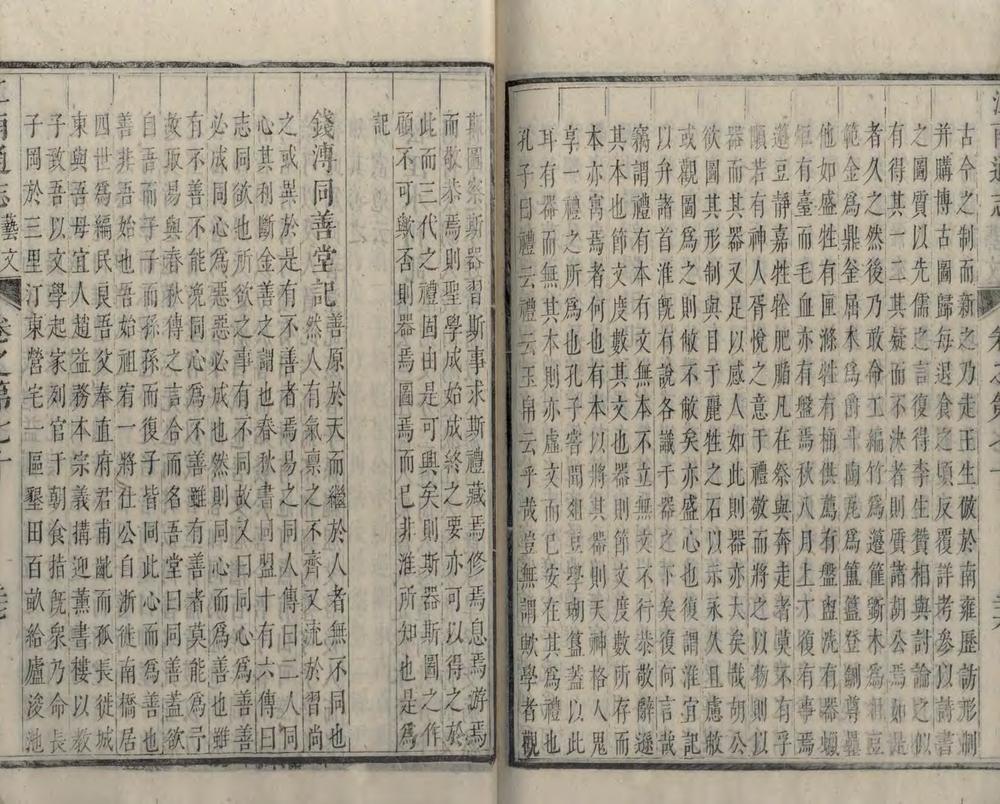 古今之制而新之乃走王生倣於南雍歷訪形制
并購博古圖歸每退食之頃反覆詳考參以詩書
之圖質以先儒之言復得李生贊相與討論之似
有得其一二其疑而不決者則質諸胡公焉如是
者久之然後乃敢命工編竹爲籩篚斵木爲柷豆
範金爲鼎釜屆木爲爵斗陶瓦爲簠簋登鉶尊罍
他如盛牲有匣滌牲有桶供薦有盤盥洗有器蠟
炬有臺而毛血亦有盤焉秋八月上丁才復有事焉
籩豆靜嘉牲牷肥腯凡在祭與奔走者莫不有乎
顒若有神人胥悅之意于禮敬而將之以物則以
器而其器又足以感人如此則器亦大矣哉胡公
欲圖其形制與目于麗牲之石以示永久且慮敝
或觀圖爲之則倣不敝矣亦盛心也復謂淮宜記
以弁諸首淮旣有說各識于器之下矣復何言哉
竊謂禮有本有文無本不立無文不行恭敬辭遜
其本也節文度數其文也器則節文度數所存而
本亦寓焉者何也有本以將其器則天神格人鬼
享一禮之所爲也孔子嘗聞俎豆學瑚簋蓋以此
耳有器而無其本則亦虛文而已安在其爲禮也
孔子曰禮云禮云玉帛云乎哉豈無謂歟學者觀
斯圖察斯器習斯事求斯禮藏焉修焉息焉游焉
而敬恭焉則聖學成始成終之要亦可以得之於
此而三代之禮固由是可興矣則斯器斯圖之作
顧不可歟否則器焉圖焉而已非淮所知也是爲
記
錢溥同善堂記善原於天而繼於人者無不同也
之或異於是有不善者焉易之同人傳曰二人同
心其利斷金善之謂也春秋書同盟十有六傳曰
志同欲也所欲之事有不同故又曰同心爲善善
必成同心爲惡惡必成也然則同心而爲善也雖
有不善不能浼同心爲不善雖有善者莫能爲予
敬取易與春秋傳之言合而名吾堂曰同善蓋欲
自吾而子子而孫孫而復子皆同此心而爲善也
善非吾始也吾始祖宥一將仕公自浙徙南橋居
四世爲編民良吾父奉直府君甫齔而孤長徙城
東與吾母宜人趙益務本宗義搆迎薰書樓以教
子致吾以文學起家列官于朝食指旣衆乃命長
子岡於三里汀東營宅一區墾田百畝給廬浚池
江南通志 藝文 卷之第七十